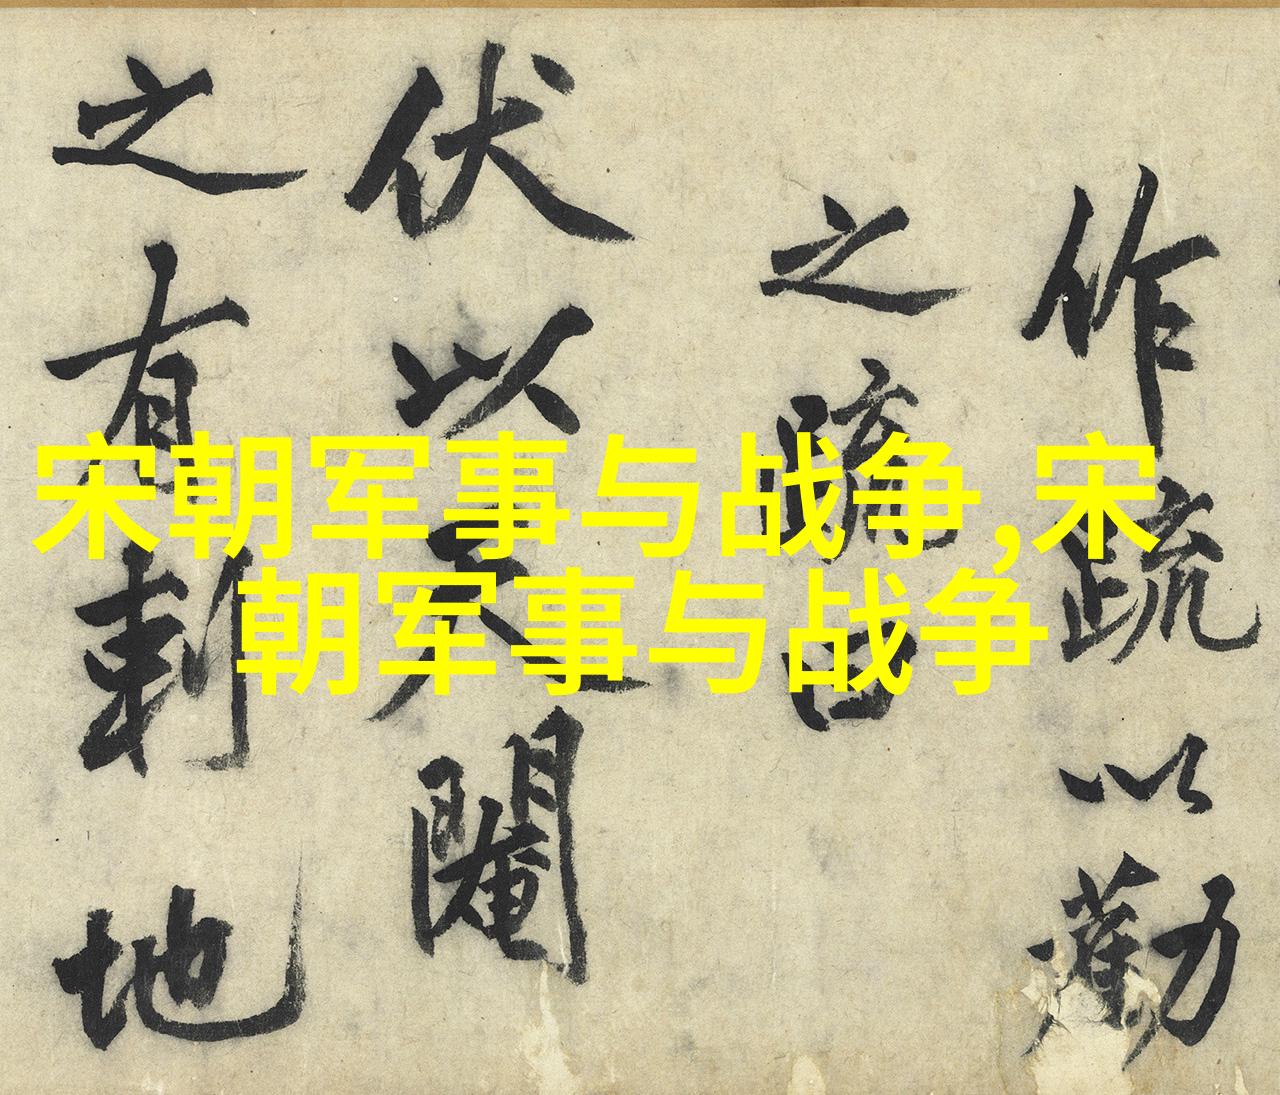 作疏以勸
之疏曰
伏以天閹
之有刺地
宋朝军事与战争,宋
朝军事与战争